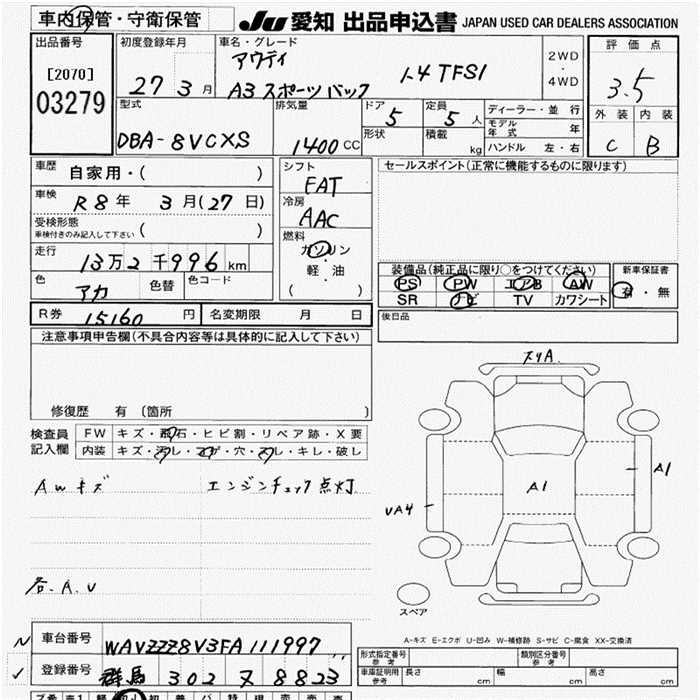 車内保管・守衛保管
JU 愛知 出品申込書 JAPAN USED CAR DEALERS ASSOCIATION
出品番号
[2070]
03279
初度登録年月
27 3月
車名・グレード
アウディ
A3 スポーツバック 1.4 TFSI
2WD
・
4WD
評価点
3.5
外装 内装
C B
型式
DBA-8VCXS
排気量
1400 CC
ドア
5
形状
定員
5 人
積載
kg
ディーラー・並行
モデル年式 年
ハンドル 左・右
車歴
自家用・( )
車検
R8年 3月(27日)
受検形態
車検付きのみ記入して下さい ( )
走行
13万2千996km
色
アカ
色替
色コード
シフト
FAT
冷房
AAC
燃料
ガソリン
・
軽・油
( )
セールスポイント(正常に機能するものに限ります)
装備品(純正品に限り○をつけてください)
PS PW エアB AW
SR ナビ TV カワシート
新車保証書
有・無
R券 15160円
名変期限 月 日
後日品
注意事項申告欄(不具合内容等は具体的に記入して下さい)
修復歴 有 〔箇所 〕
検査員
記入欄
FW キズ・飛石・ヒビ割・リペア跡・X要
内装 キズ・汚レ・コゲ・穴・スレ・キレ・破レ
AWキズ エンジンチェック点灯
各.A.U
スリA.
A1
A1
UA4
スペア
A-キズ E-エクボ U-凹み W-補修跡 S-サビ C-腐食 XX-交換済
車台番号
WAVZZZ8V3FA111997
登録番号
群馬 302 ヌ 8823
形式指定番号
参考
類別区分番号
参考
車庫証明用
参考
長さ cm 幅 cm 高さ cm